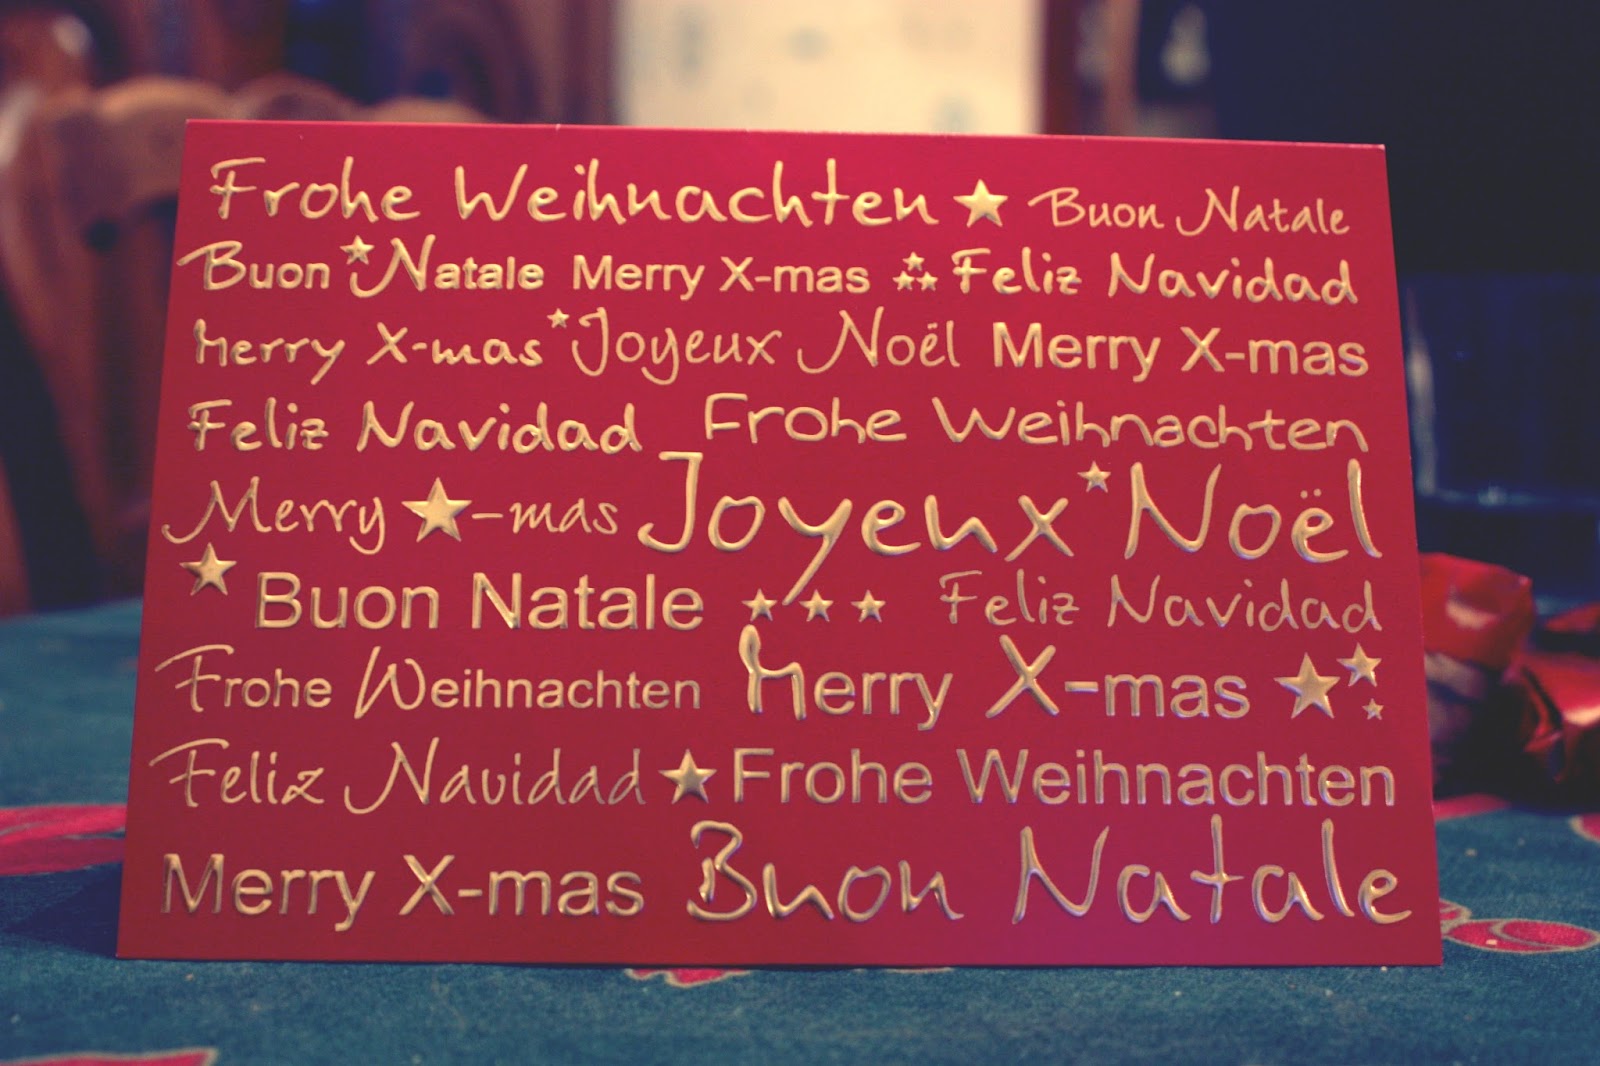 Frohe Weihnachten Buon Natale
Buon Natale Merry X-mas Feliz Navidad
Merry X-mas Joyeux Noël Merry X-mas
Feliz Navidad Frohe Weihnachten
Merry -mas Joyeux Noël
Buon Natale Feliz Navidad
Frohe Weihnachten Merry X-mas
Feliz Navidad Frohe Weihnachten
Merry X-mas Buon Natale